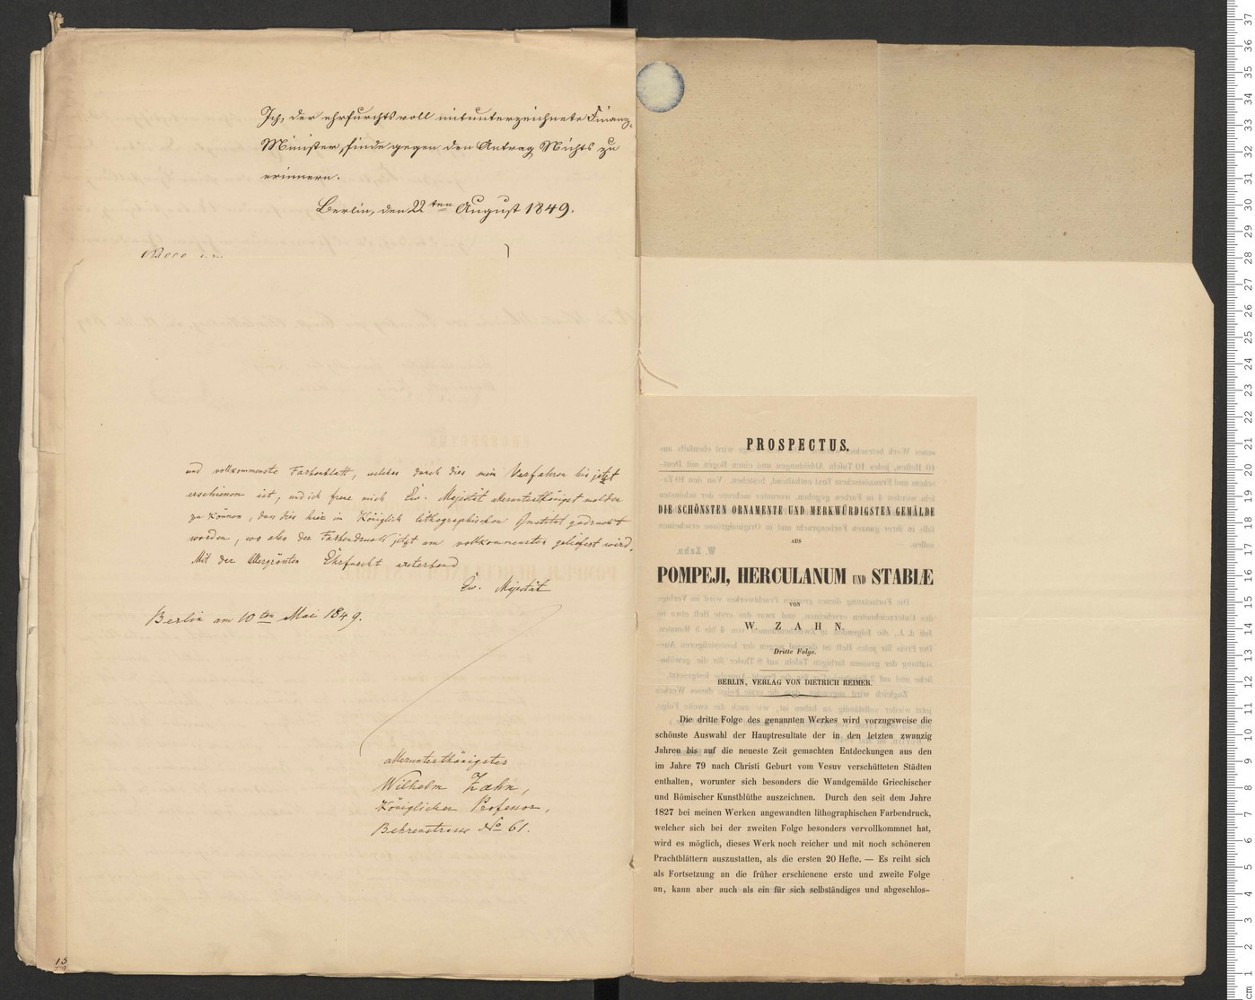 Ich, der ehrfurchtsvoll mitunterzeichnete Finanz-
Minister, finde gegen den Antrag Nichts zu
erinnern.
Berlin, den 22ten August 1849.
und vollkommenste Farbenblatt, welches durch dies mein Verfahren bis jetzt
erschienen ist, und ich freue mich Ew. Majestät allerunterthänigst melden
zu können, dass dies hier im Königlich lithographischen Institut gedruckt
worden, wo also der Farbendruck jetzt am vollkommensten geliefert wird.
Mit der allergrössten Ehrfurcht ersterbend
Ew. Majestät
Berlin am 10ten Mai 1849.
allerunterthänigster
Wilhelm Zahn,
Königlicher Professor,
Behrenstrasse No 61.
PROSPECTUS.
DIE SCHÖNSTEN ORNAMENTE UND MERKWÜRDIGSTEN GEMÄLDE
AUS
POMPEJI, HERCULANUM UND STABIÆ
VON
W. ZAHN.
Dritte Folge.
BERLIN, VERLAG VON DIETRICH REIMER.
Die dritte Folge des genannten Werkes wird vorzugsweise die
schönste Auswahl der Hauptresultate der in den letzten zwanzig
Jahren bis auf die neueste Zeit gemachten Entdeckungen aus den
im Jahre 79 nach Christi Geburt vom Vesuv verschütteten Städten
enthalten, worunter sich besonders die Wandgemälde Griechischer
und Römischer Kunstblüthe auszeichnen. Durch den seit dem Jahre
1827 bei meinen Werken angewandten lithographischen Farbendruck,
welcher sich bei der zweiten Folge besonders vervollkommnet hat,
wird es möglich, dieses Werk noch reicher und mit noch schöneren
Prachtblättern auszustatten, als die ersten 20 Hefte. — Es reiht sich
als Fortsetzung an die früher erschienene erste und zweite Folge
an, kann aber auch als ein für sich selbständiges und abgeschlos-